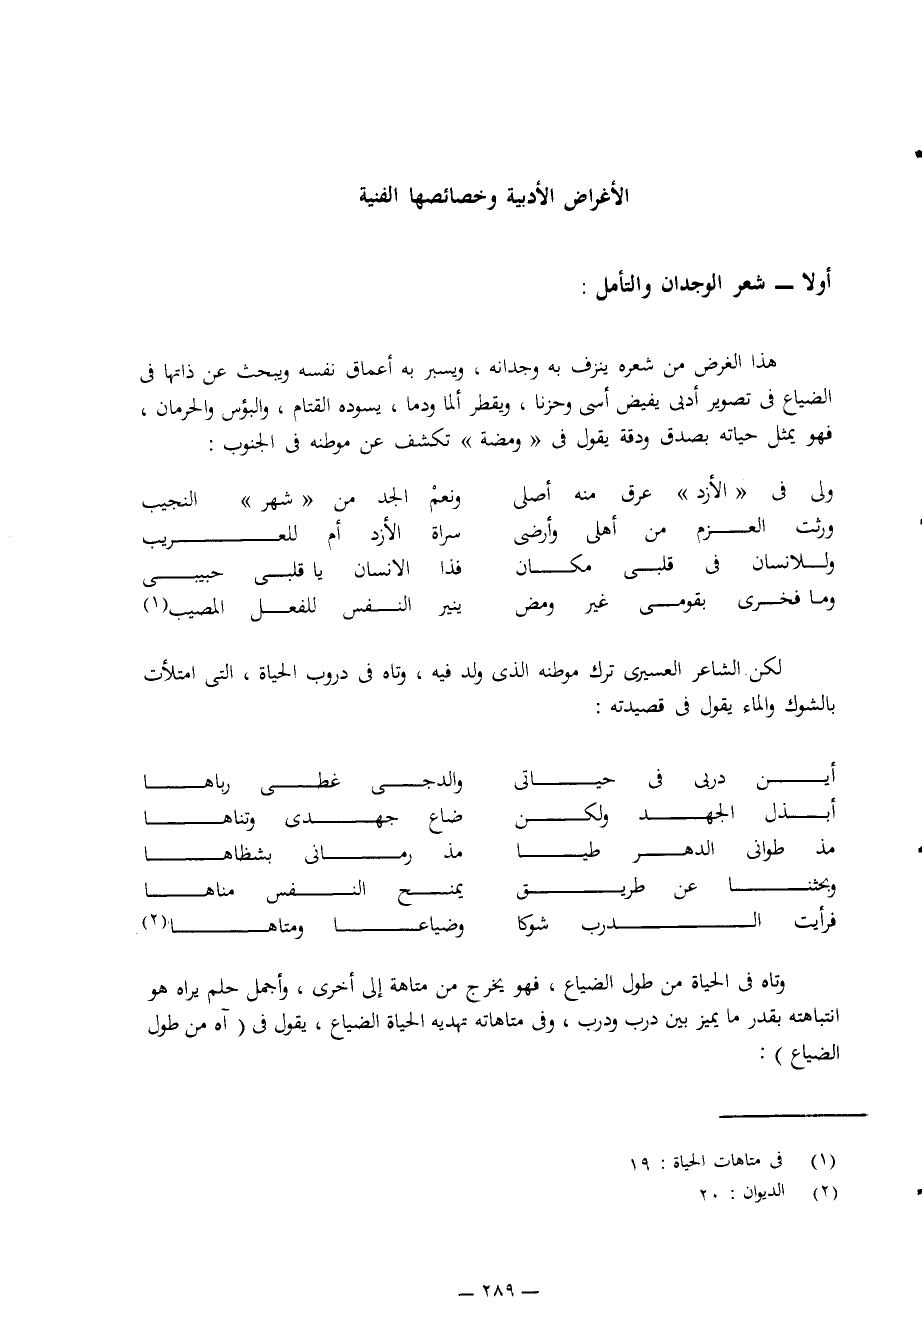 الأغراض الأدبية وخصائصها الفنية
أولا ــ شعر الوجدان والتأمل :
هذا الغرض من شعره ينزف به وجدانه ، ويسبر به أعماق نفسه ويبحث عن ذاتها فى
الضياع فى تصوير أدبى يفيض أسى وحزنا ، ويقطر ألما ودما ، يسوده القتام ، والبؤس والحرمان ،
فهو يمثل حياته بصدق ودقة يقول فى « ومضة » تكشف عن موطنه فى الجنوب :
ولى فى « الأزد » عرق منه أصلى ونعمْ الجد من « شهر » النجيب
ورثت العـزم من أهلى وأرضى سراة الأزد أم للعـريب
ولـلانسان فى قلبـى مكـان فذا الانسان يا قلبـى حبيبـى
وما فخـرى بقومـى غير ومض ينير النـفس للفعـل المصيب(١)
لكن الشاعر العسيرى ترك موطنه الذى ولد فيه ، وتاه فى دروب الحياة ، التى امتلأت
بالشوك والماء يقول فى قصيدته :
أيـن دربى فى حيـاتى والدجـى غطـى رباهـا
أبـذل الجهـد ولكـن ضاع جهـدى وتناهـا
مذ طوانى الدهـر طيـا مذ رمـانى بشظاهـا
وبحثنـا عن طريـق يمنـح النـفس مناهـا
فرأيت الـدرب شوكا وضياعـا ومتاهـا(٢)
وتاه فى الحياة من طول الضياع ، فهو يخرج من متاهة إلى أخرى ، وأجمل حلم يراه هو
انتباهته بقدر ما يميز بين درب ودرب ، وفى متاهاته تهديه الحياة الضياع ، يقول فى ( آه من طول
الضياع ) :
(١) فى متاهات الحياة : ١٩
(٢) الديوان : ٢٠
ــ ٢٨٩ ــ